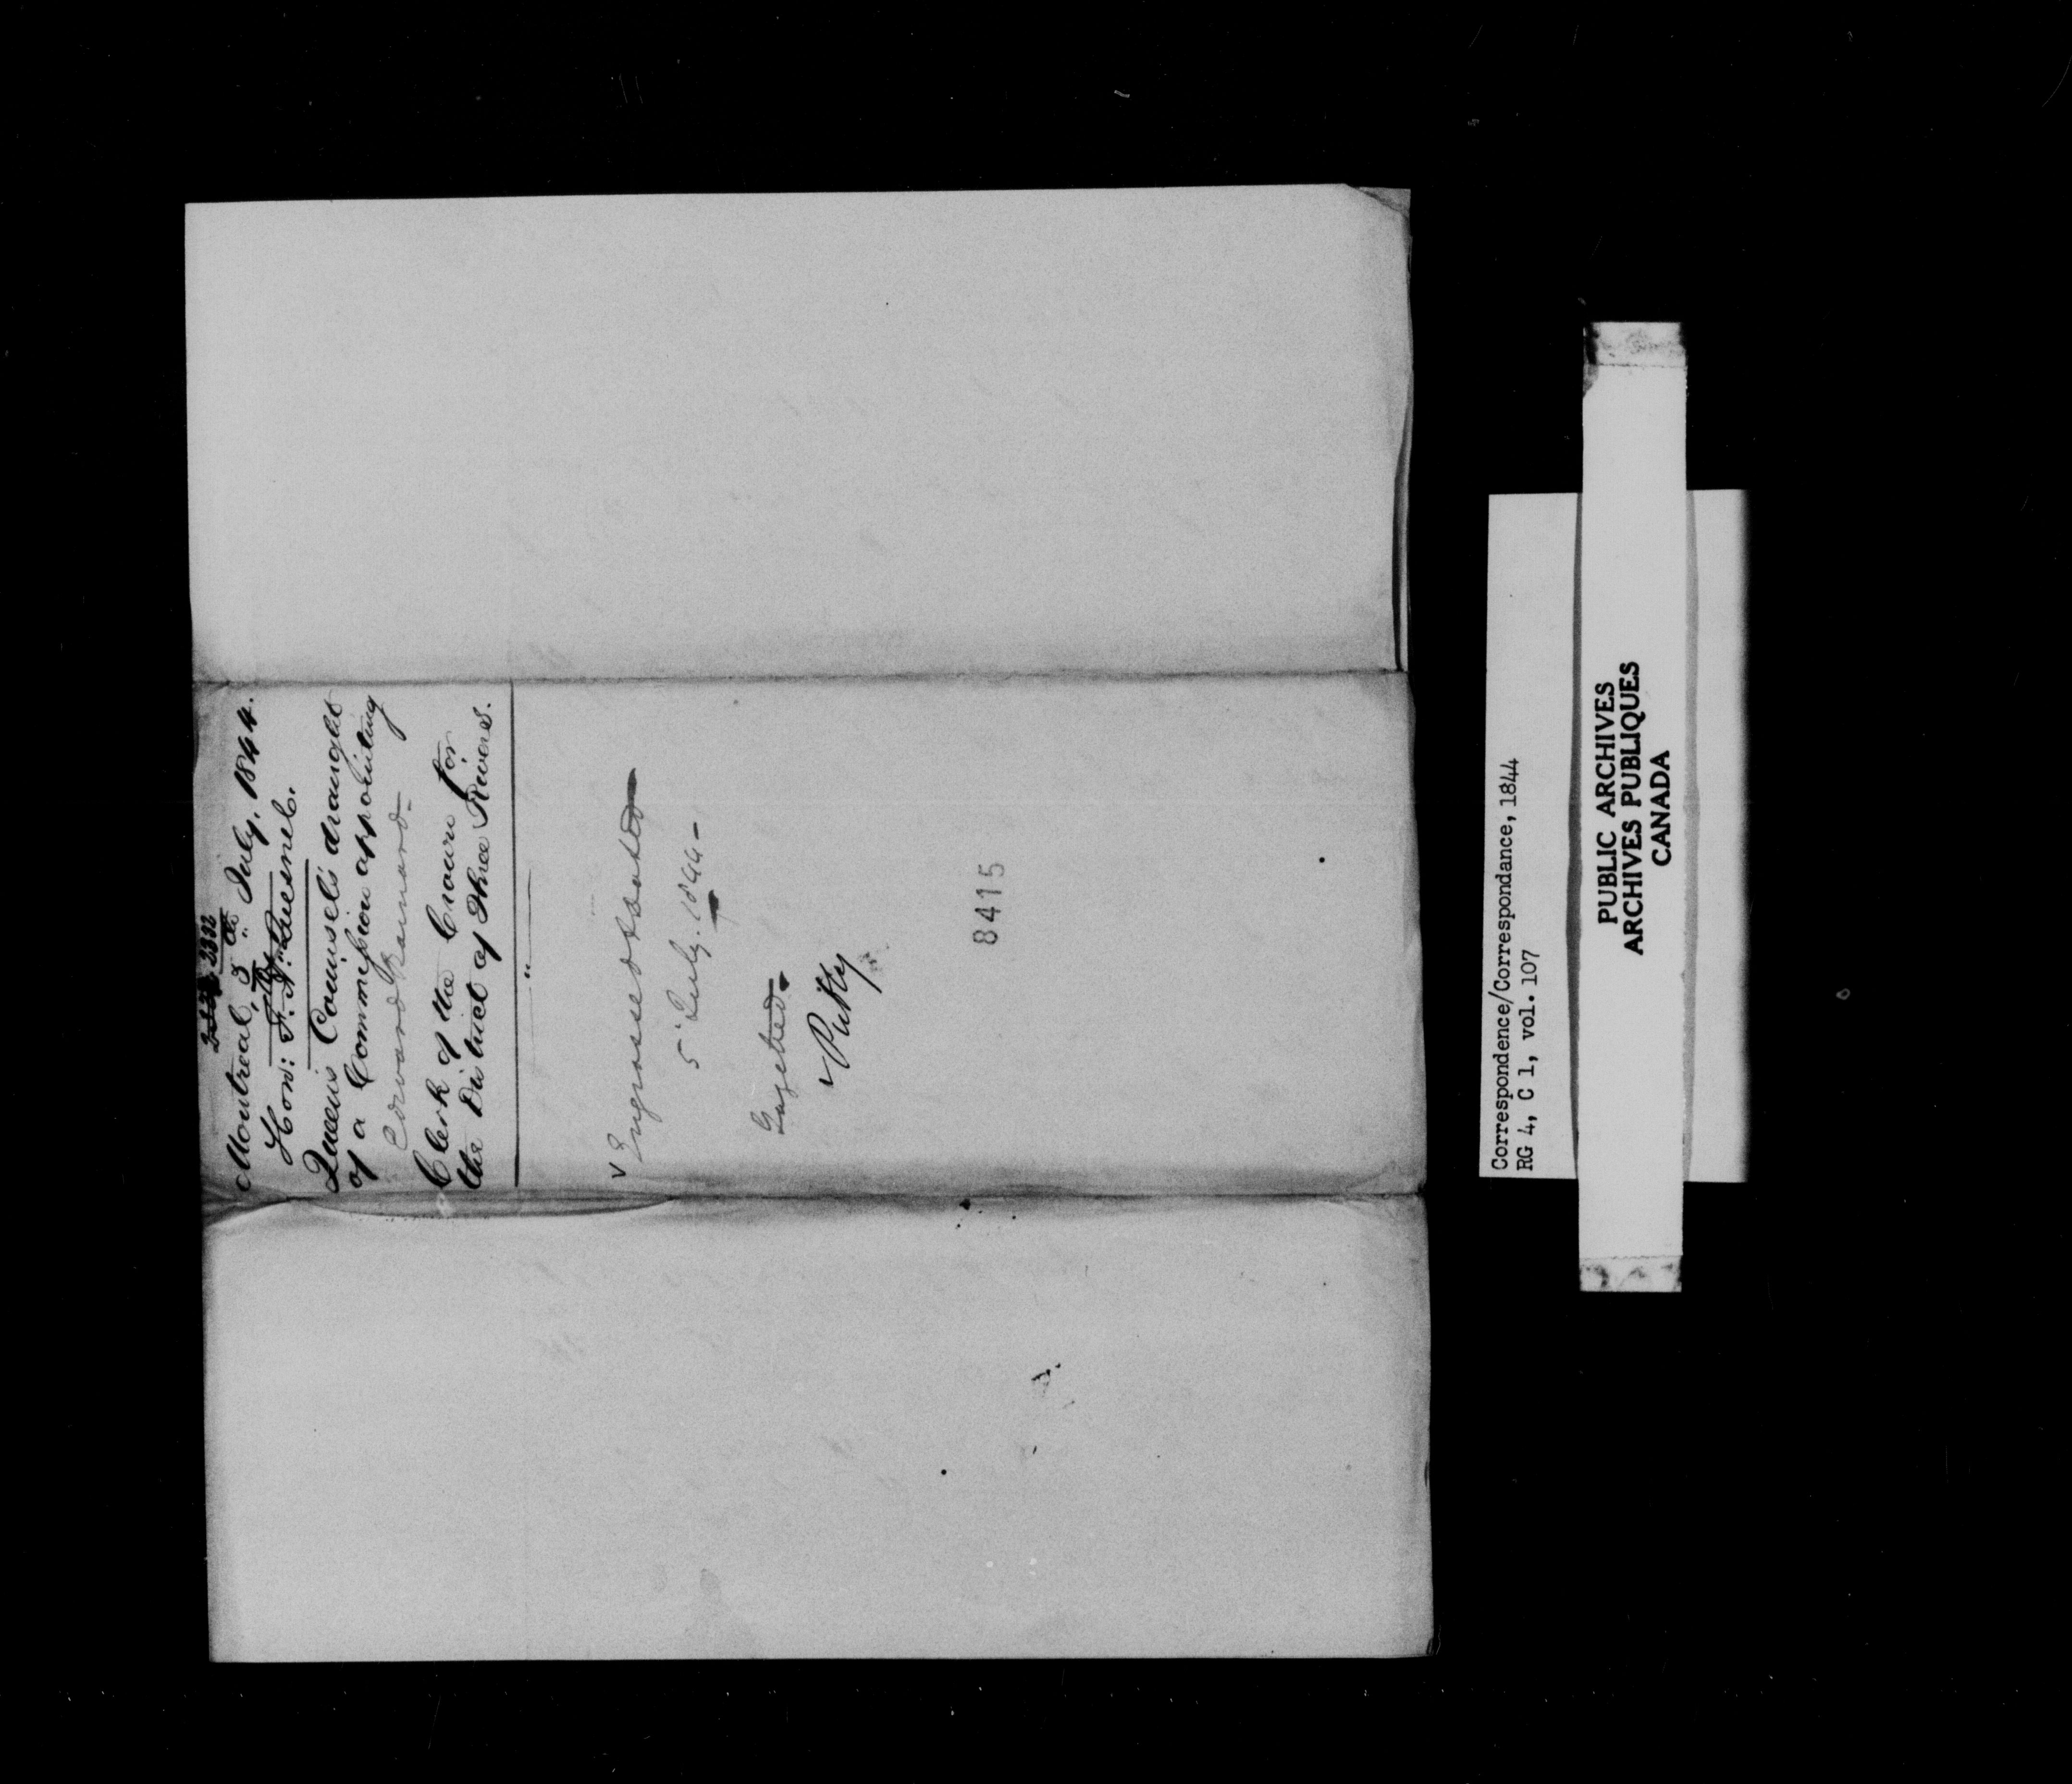 2322
Montreal, 5th July, 1844.
Hon: F. A. Quesnel.
Queen's Counsel's draught
of a Commission appointing
Edward Barnard -
Clerk of the Crown for
the District of Three Rivers.
Engrossed & dated
5 July. 1844 -
Gazetted
8415
Correspondence/Correspondance, 1844
RG 4, C 1, vol. 107
PUBLIC ARCHIVES
ARCHIVES PUBLIQUES
CANADA